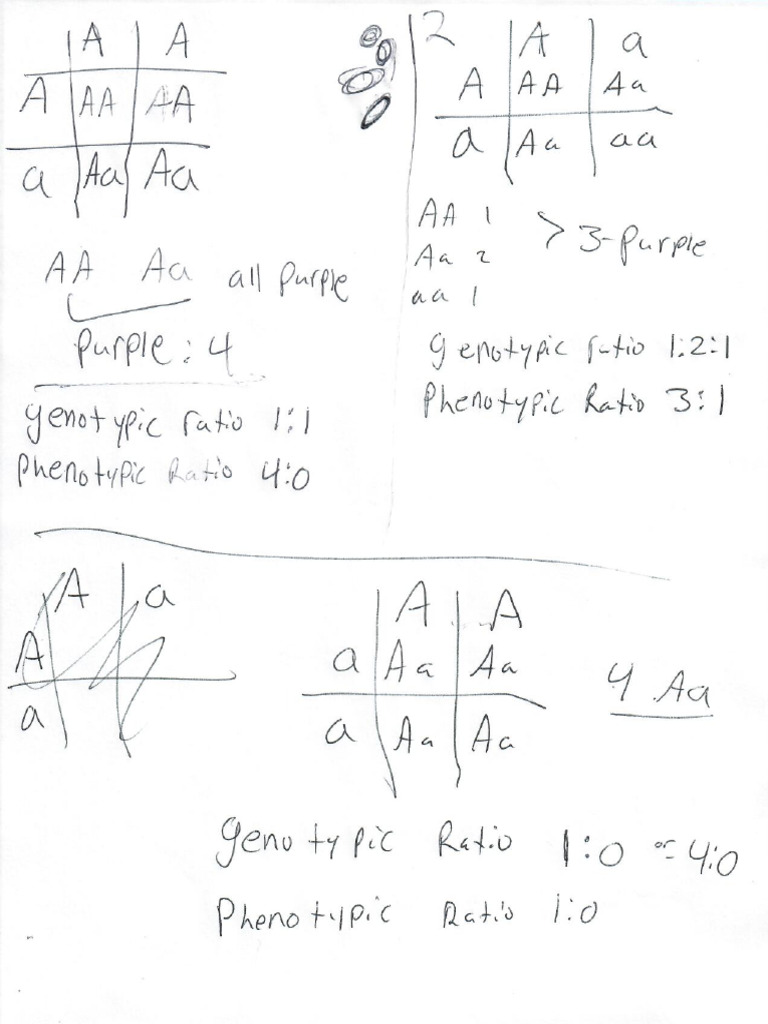 A A
A AA AA
a Aa Aa
AA Aa all purple
Purple: 4
genotypic ratio 1:1
phenotypic Ratio 4:0
2 A a
A AA Aa
a Aa aa
AA 1
Aa 2
aa 1
> 3-purple
genotypic ratio 1:2:1
Phenotypic Ratio 3:1
A a
A
a
A A
a Aa Aa
a Aa Aa
4 Aa
genotypic Ratio 1:0 or 4:0
Phenotypic Ratio 1:0